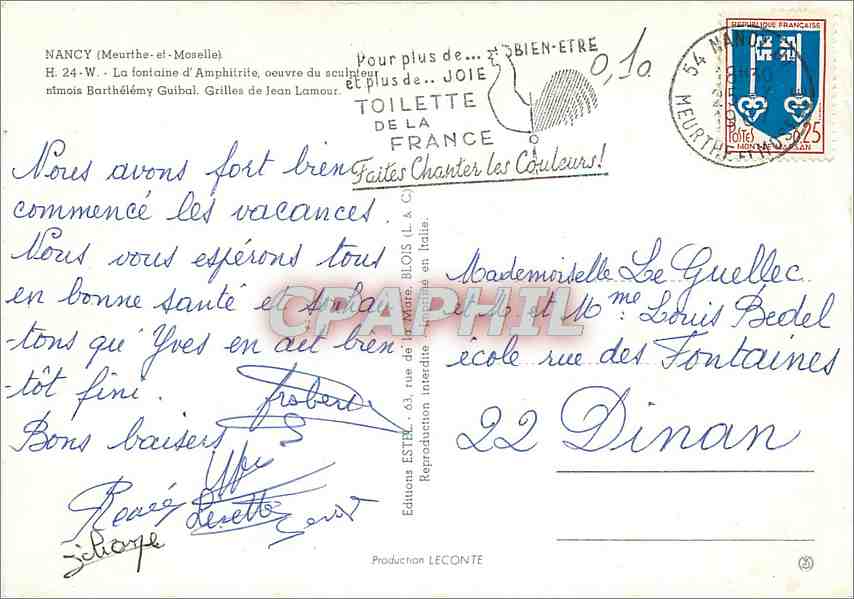 NANCY (Meurthe-et-Moselle)
H. 24-W. - La fontaine d'Amphitrite, oeuvre du sculpteur
nîmois Barthélémy Guibal. Grilles de Jean Lamour.
Pour plus de... BIEN-ETRE
et plus de.. JOIE
TOILETTE
DE LA
FRANCE
Faites Chanter les Couleurs!
0,10
54 NANCY
MEURTHE-ET-MOSELLE
REPUBLIQUE FRANÇAISE
POSTES 0,25
MONT-DE-MARSAN
Nous avons fort bien
commencé les vacances.
Nous vous espérons tous
en bonne santé et souhai
tons qu'Yves en ait bien
-tôt fini.
Bons baisers
Renée Lisette
Editions ESTEL - 63, rue de la Mare, BLOIS (L. & C)
Reproduction interdite - Imprimé en Italie.
CPAPHIL
Mademoiselle Le Guellec
et M et Mme Louis Bedel
école rue des Fontaines
22 Dinan
Production LECONTE